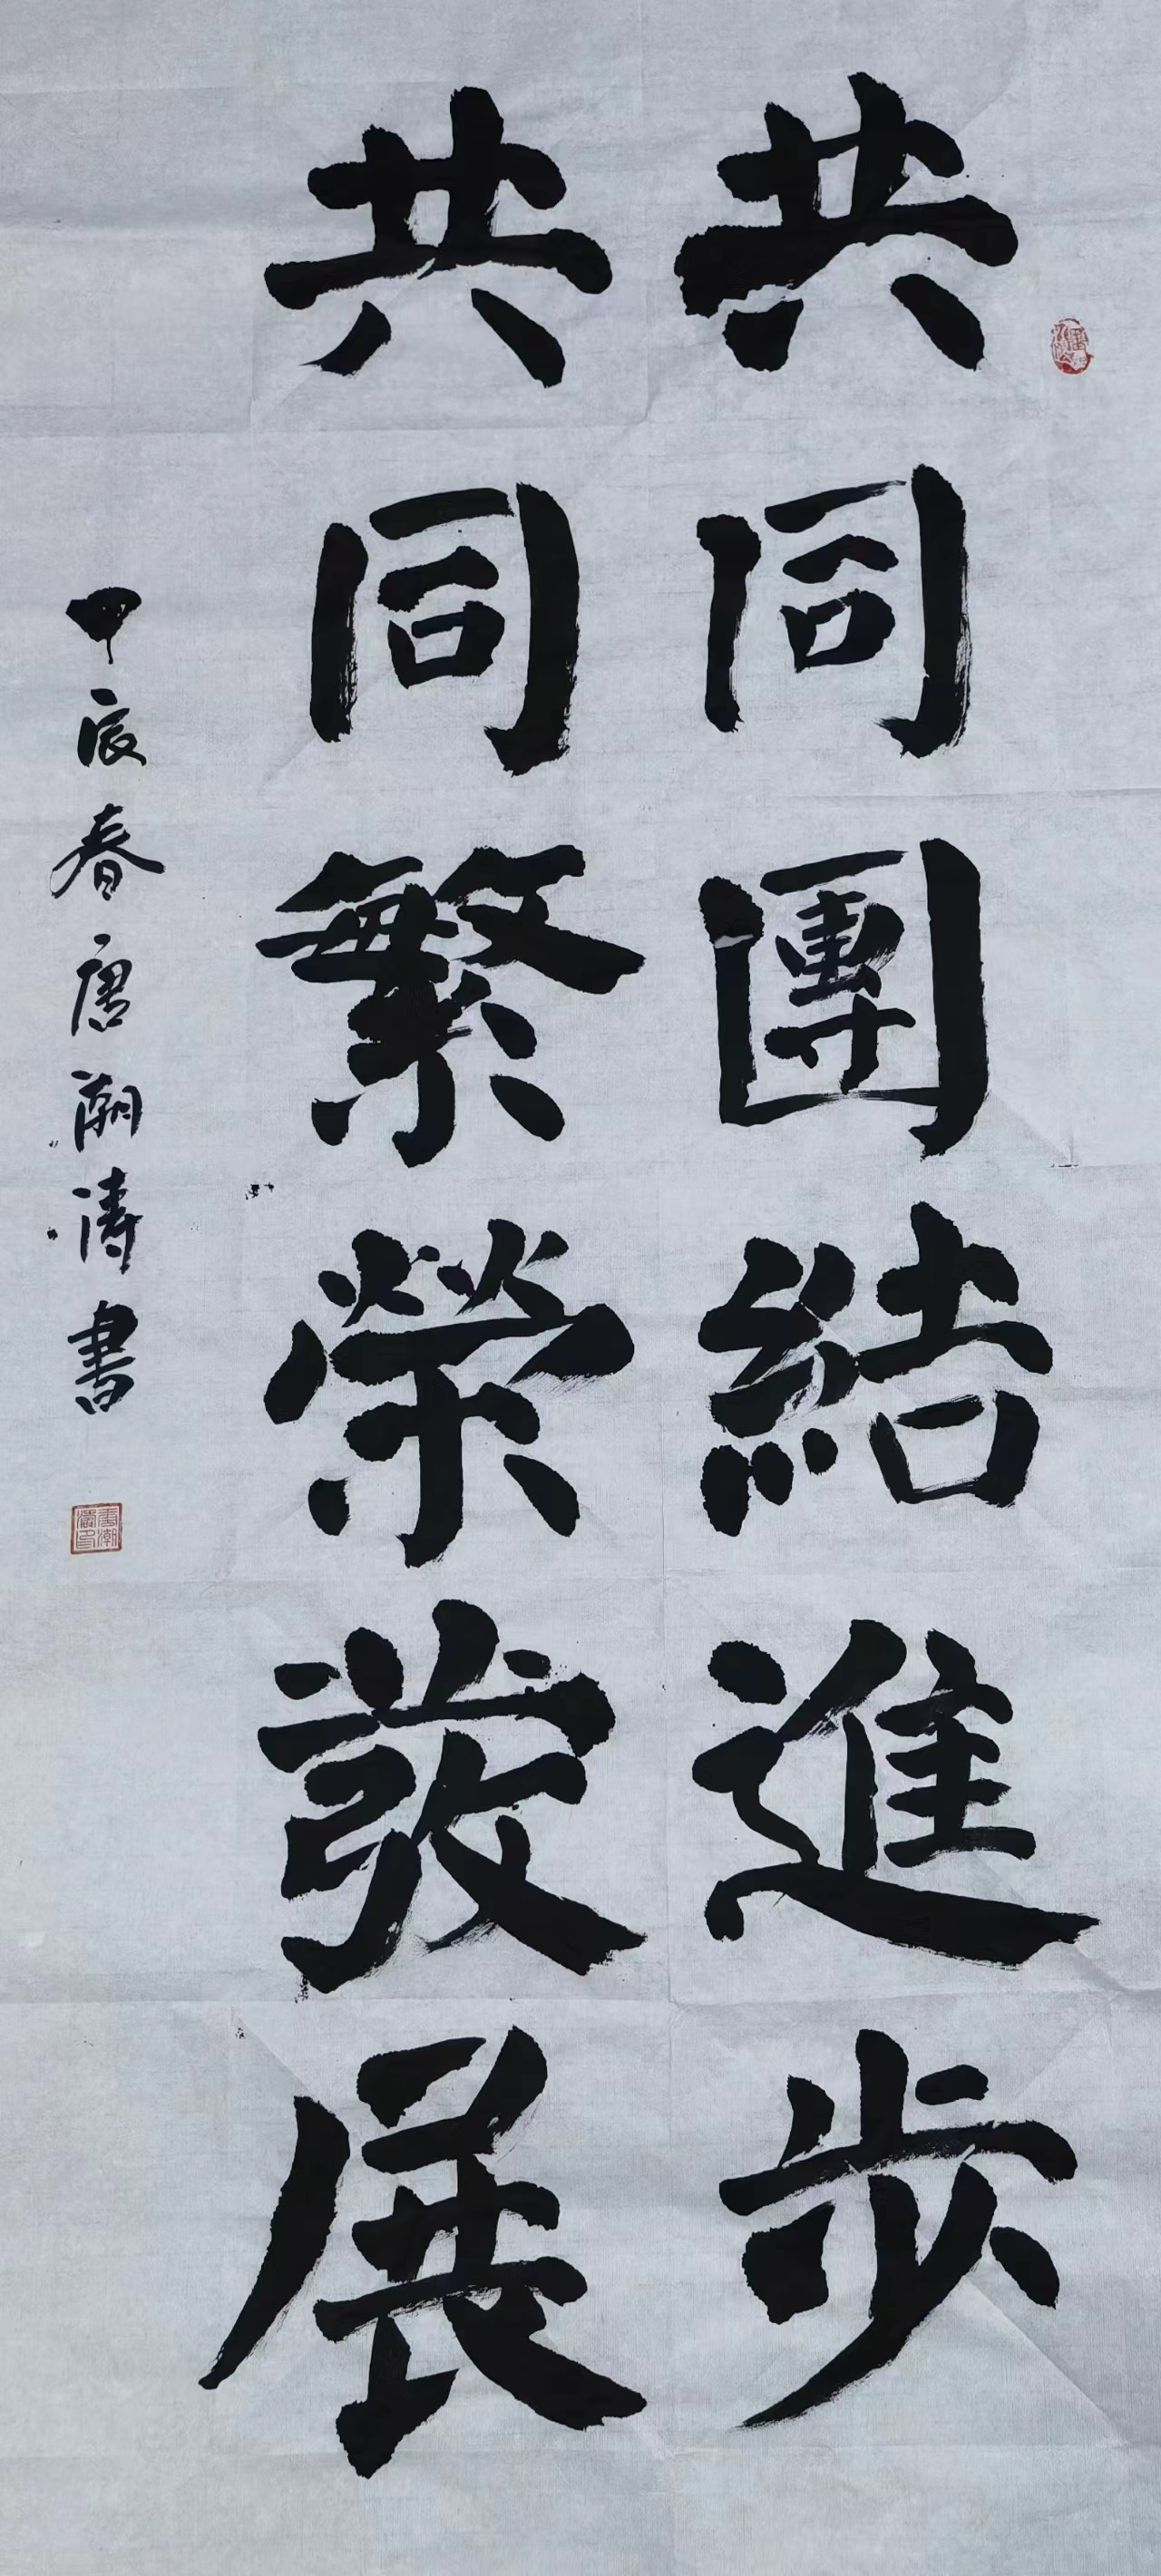 共同團結進步
共同繁榮發展
甲辰春唐潮濤書